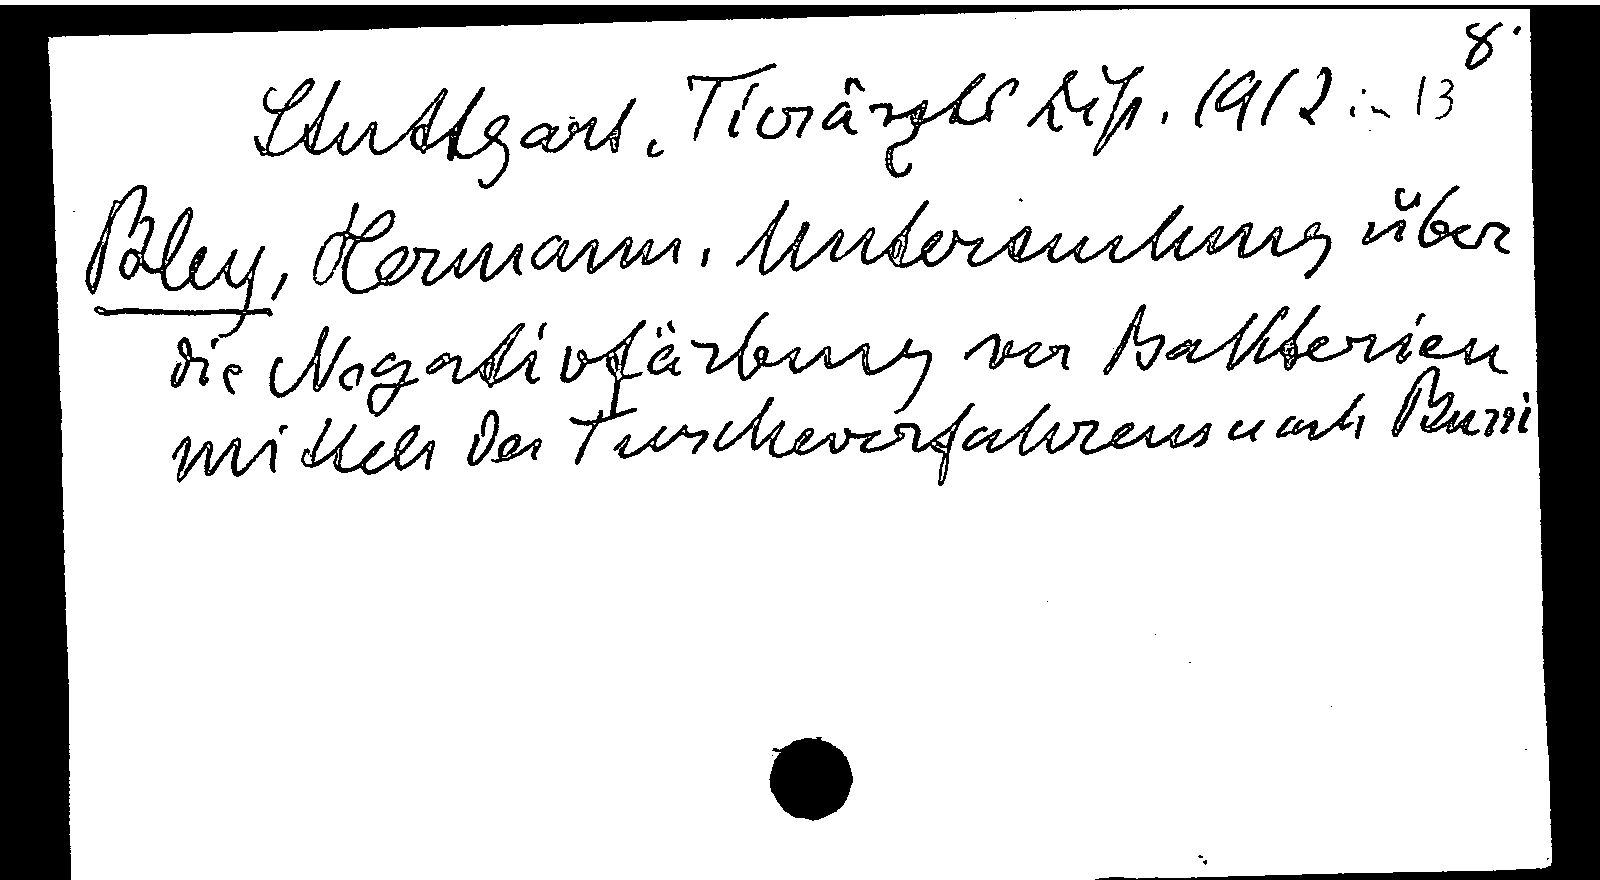 8.
Stuttgart. Tierärztl Diss. 1912 in 13
Bley, Hermann. Untersuchung über
die Negativfärbung von Bakterien
mittels des Tuscheverfahrens nach Burri